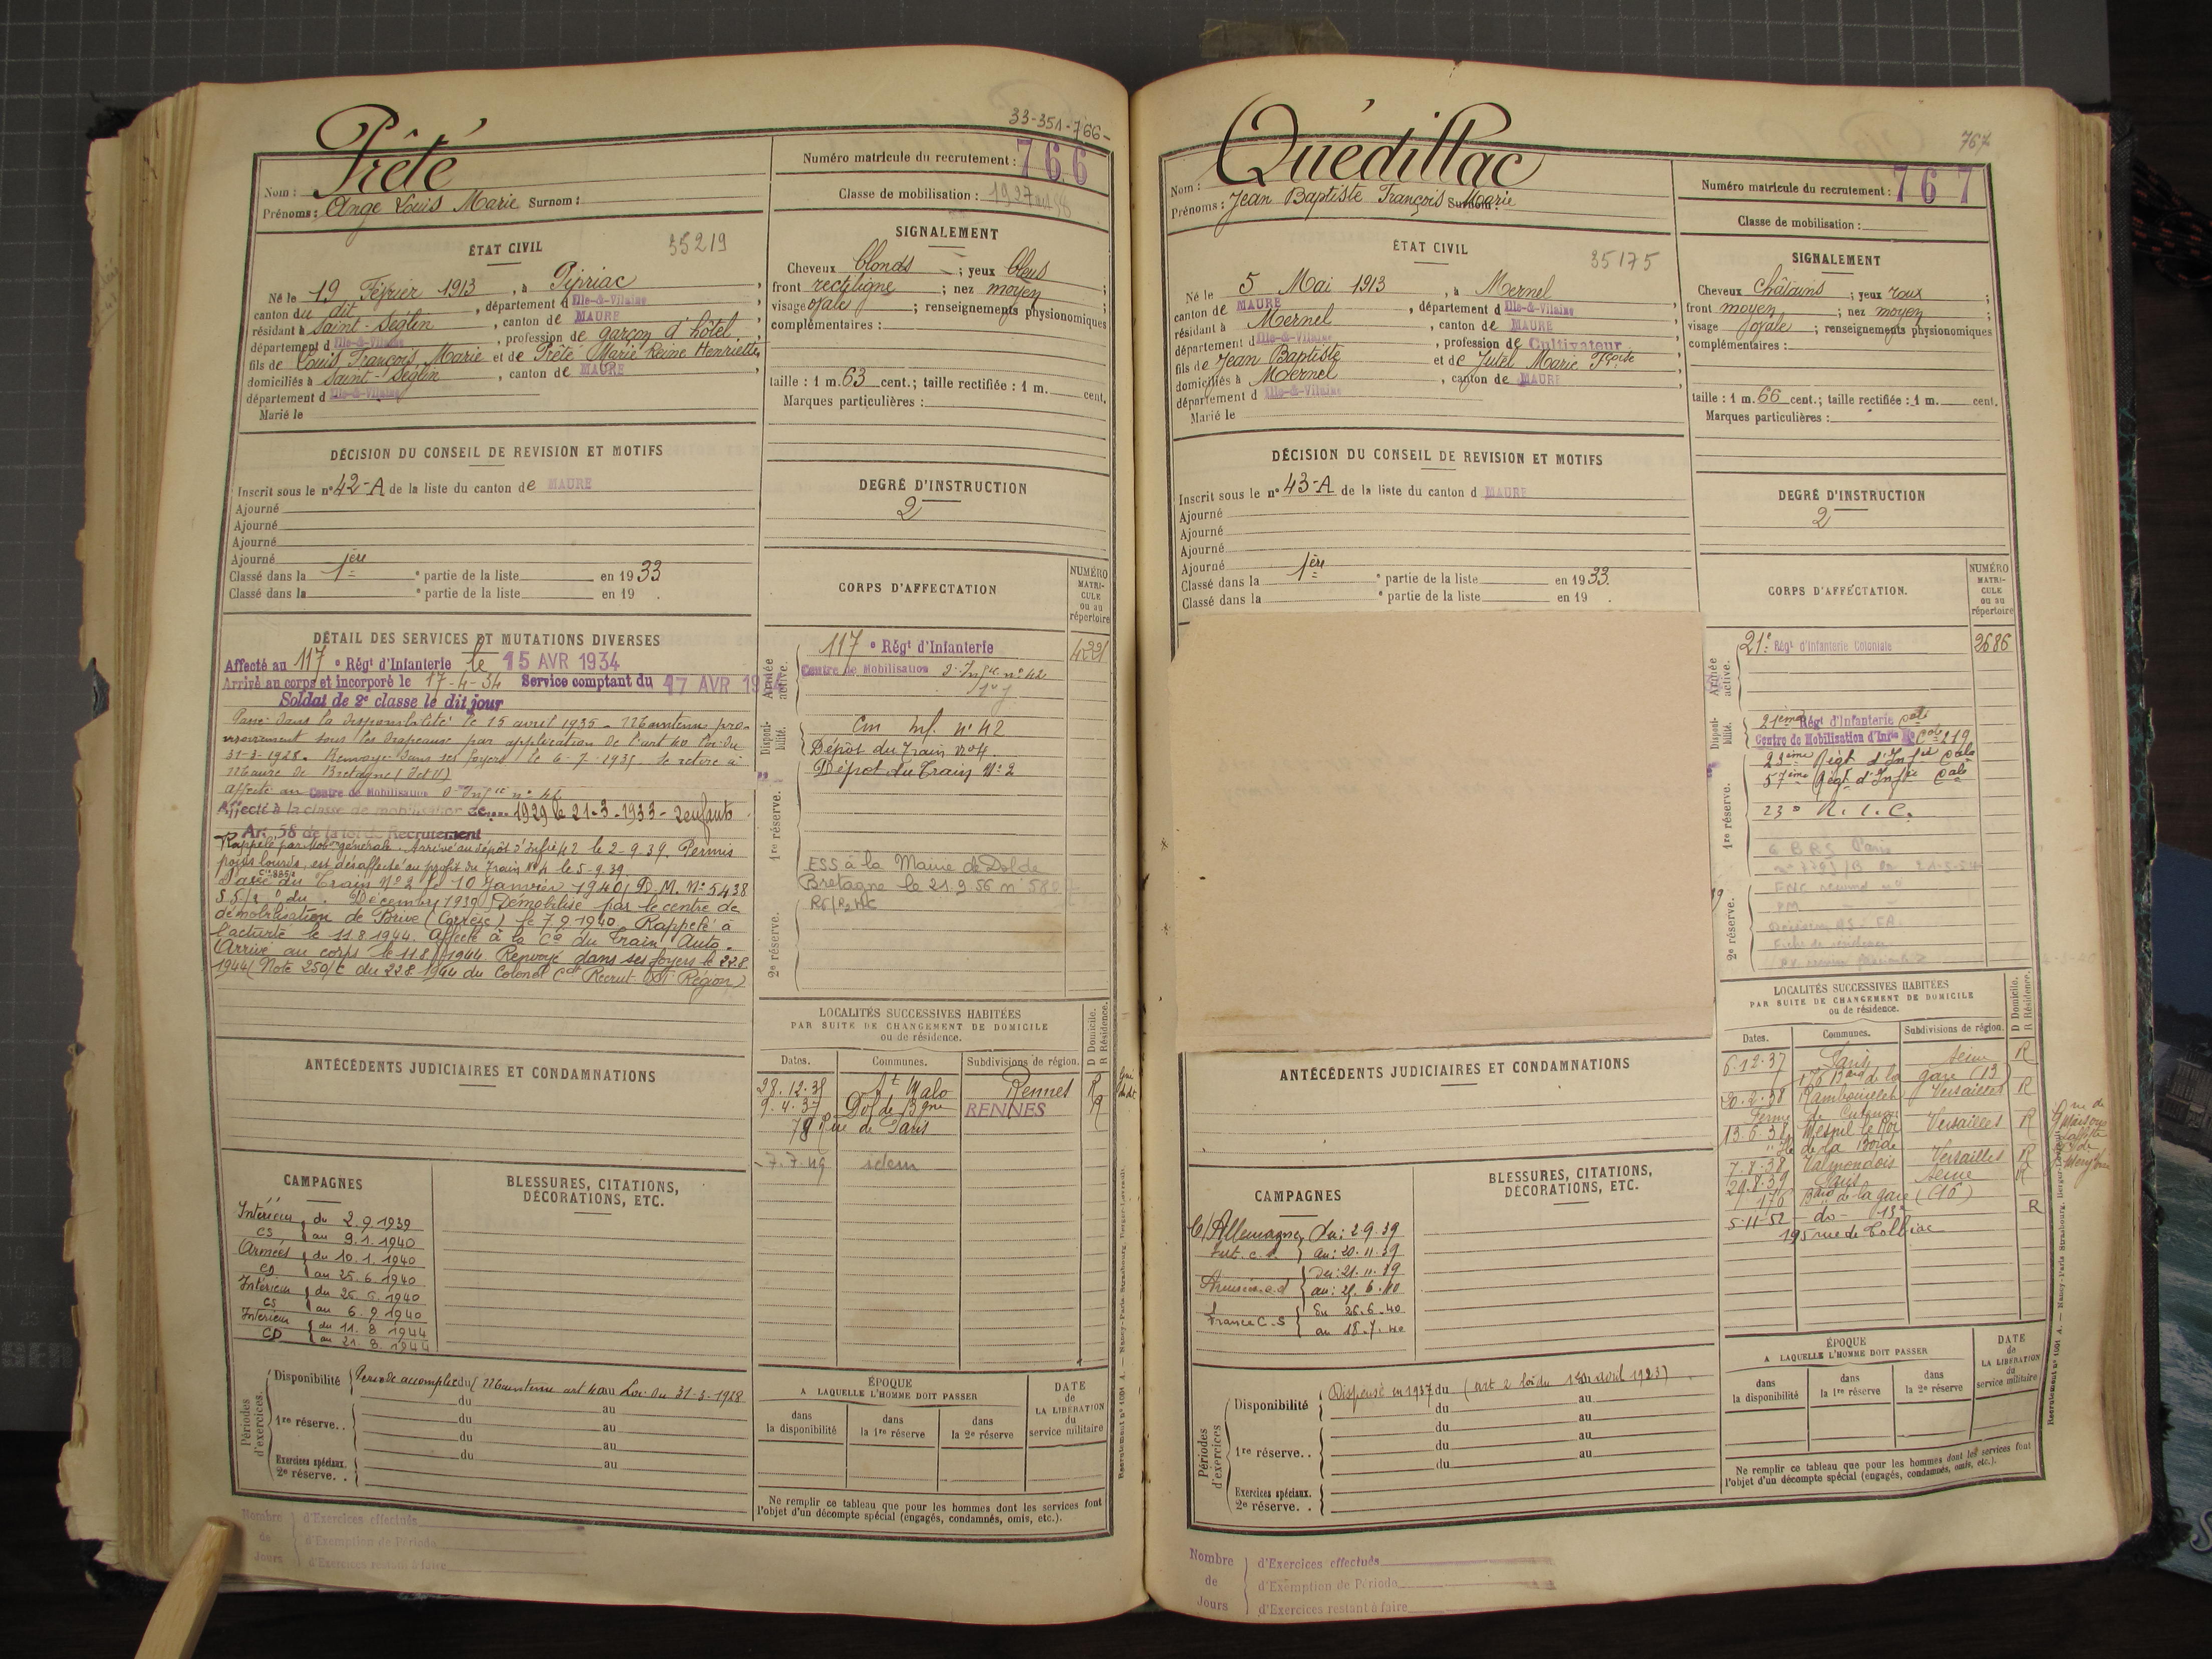 33-351-766-
Prêté
Nom :
Prénoms : Ange Louis Marie Surnom :
Numéro matricule du recrutement : 766
Classe de mobilisation : 1927
ÉTAT CIVIL
35219
Né le 19 Février 1913, à Pipriac,
canton du dit, département d Ille-&-Vilaine,
résidant à Saint-Séglin, canton de MAURE
département d Ille-&-Vilaine, profession de garçon d'hôtel,
fils de Louis François Marie et de Prêté Marie Reine Henriette,
domiciliés à Saint-Séglin, canton de MAURE,
département d Ille-&-Vilaine
Marié le
SIGNALEMENT
Cheveux blonds ; yeux bleus
front rectiligne ; nez moyen ;
visage ovale ; renseignements physionomiques
complémentaires :
taille : 1 m. 63 cent.; taille rectifiée : 1 m. cent.
Marques particulières :
DÉCISION DU CONSEIL DE REVISION ET MOTIFS
Inscrit sous le n° 42-A de la liste du canton de MAURE
Ajourné
Ajourné
Ajourné
Ajourné
Classé dans la 1ère partie de la liste en 1933
Classé dans la e partie de la liste en 19 .
DEGRÉ D'INSTRUCTION
2
CORPS D'AFFECTATION
NUMÉRO
MATRI-
CULE
ou au
répertoire
DÉTAIL DES SERVICES ET MUTATIONS DIVERSES
Affecté au 117e Régt d'Infanterie le 15 AVR 1934
Arrivé au corps et incorporé le 17-4-34 Service comptant du 17 AVR 19
Soldat de 2e classe le dit jour
Passé dans la disponibilité le 15 avril 1935 - Maintenu pro-
visoirement sous les drapeaux par application de l'art 40 loi du
31-3-1928. Renvoyé dans ses foyers le 6-7-1935 se retire à
Maure de Bretagne (I et V)
Affecté au Centre de Mobilisation d'Infie n° 42
Affecté à la classe de mobilisation de 1929 le 21-3-1933 - 2 enfants
Art. 58 de la loi de Recrutement
Rappelé par Mobon générale. Arrivé au dépôt d'infie 42 le 2-9-39. Permis
poids lourds, est désaffecté au profit du Train N° 4 le 5-9-39.
Passé au Train N° 2 le 10 janvier 1940 (D.M. N° 5438
du Décembre 1939) Démobilisé par le centre de
démobilisation de Brive (Corrèze) le 7 9 1940. Rappelé à
l'activité le 11 8 1944. Affecté à la Cie du Train Auto.
Arrivé au corps le 11 8 1944. Renvoyé dans ses foyers le 22 8
1944 (Note 250/C du 22 8 1944 du Colonel Cdt Recrut. Région)
Armée active.
117e Régt d'Infanterie
4221
Centre de Mobilisation d'Infie n° 42
Disponibilité.
Cm Inf. n° 42
Dépôt du Train n° 4.
Dépôt du Train N° 2
1re réserve.
ESS à la Mairie de Dol de
Bretagne le 21.9.56 n° 580
2e réserve.
LOCALITÉS SUCCESSIVES HABITÉES
PAR SUITE DE CHANGEMENT DE DOMICILE
ou de résidence.
D Domicile.
R Résidence.
Dates. Communes. Subdivisions de région.
28.12.35 St Malo Rennes R
9.4.37 Dol de Bgne RENNES R
78 Rue de Paris
7.7.49 idem
ANTÉCÉDENTS JUDICIAIRES ET CONDAMNATIONS
CAMPAGNES
Intérieur du 2.9.1939
CS au 9.1.1940
Armées du 10.1.1940
CD au 25.6.1940
Intérieur du 26.6.1940
CS au 6.9.1940
Intérieur du 11.8.1944
CD au 21.8.1944
BLESSURES, CITATIONS,
DÉCORATIONS, ETC.
Périodes d'exercices.
Disponibilité Période accomplie du (Maintenu art 40 au Loi du 31-3-1928
du au
1re réserve. . du au
du au
du au
Exercices spéciaux.
2e réserve. .
ÉPOQUE
A LAQUELLE L'HOMME DOIT PASSER
dans la disponibilité
dans la 1re réserve
dans la 2e réserve
DATE
de
LA LIBÉRATION
du
service militaire
Ne remplir ce tableau que pour les hommes dont les services font
l'objet d'un décompte spécial (engagés, condamnés, omis, etc.).
Nombre de Jours
d'Exercices effectués
d'Exemption de Période
d'Exercices restant à faire
767
Quédillac
Nom :
Prénoms : Jean Baptiste François Marie Surnom :
Numéro matricule du recrutement : 767
Classe de mobilisation :
ÉTAT CIVIL
35175
Né le 5 Mai 1913, à Mernel
canton de MAURE, département d Ille-&-Vilaine,
résidant à Mernel, canton de MAURE
département d Ille-&-Vilaine, profession de Cultivateur
fils de Jean Baptiste et de Jutel Marie Fçoise
domiciliés à Mernel, canton de MAURE,
département d Ille-&-Vilaine
Marié le
SIGNALEMENT
Cheveux châtains ; yeux roux ;
front moyen ; nez moyen ;
visage ovale ; renseignements physionomiques
complémentaires :
taille : 1 m. 66 cent.; taille rectifiée : 1 m. cent.
Marques particulières :
DÉCISION DU CONSEIL DE REVISION ET MOTIFS
Inscrit sous le n° 43-A de la liste du canton d MAURE
Ajourné
Ajourné
Ajourné
Ajourné
Classé dans la 1ère partie de la liste en 1933.
Classé dans la e partie de la liste en 19 .
DEGRÉ D'INSTRUCTION
2
CORPS D'AFFECTATION.
NUMÉRO
MATRI-
CULE
ou au
répertoire
Armée active.
21e Régt d'Infanterie Coloniale
2686
Disponibilité.
21ème Régt d'Infanterie Cole
Centre de Mobilisation d'Infie Cole 219
23ème Régt d'Infie Cale
57ème Régt d'Infie Cale
1re réserve.
23e R.I.C.
2e réserve.
LOCALITÉS SUCCESSIVES HABITÉES
PAR SUITE DE CHANGEMENT DE DOMICILE
ou de résidence.
D Domicile.
R Résidence.
Dates. Communes. Subdivisions de région.
6.12.37 Paris Seine R
176 Bard de la gare (13)
20.2.38 Rambouillet Versailles R
Ferme de
13.6.38 Mesnil le Roi Versailles R
de la Borde
7.8.38 Valmondois Versailles R
29.8.39 Paris Seine R
176 Bard de la gare
5-11-52 do - 13e R
195 rue de Tolbiac
ANTÉCÉDENTS JUDICIAIRES ET CONDAMNATIONS
CAMPAGNES
C/Allemagne, du : 2 9.39
Int. c.s. au : 20.11.39
du : 21.11.39
Armée c.d au : 25.6.40
du 26.6.40
France C.S au 18.7.40
BLESSURES, CITATIONS,
DÉCORATIONS, ETC.
Périodes d'exercices
Disponibilité Dispensé en 1937 du (art 2 loi du 1er avril 1923)
du au
1re réserve. . du au
du au
du au
Exercices spéciaux.
2e réserve. .
ÉPOQUE
A LAQUELLE L'HOMME DOIT PASSER
dans la disponibilité
dans la 1re réserve
dans la 2e réserve
DATE
de
LA LIBÉRATION
du
service militaire
Ne remplir ce tableau que pour les hommes dont les services font
l'objet d'un décompte spécial (engagés, condamnés, omis, etc.).
Nombre de Jours
d'Exercices effectués
d'Exemption de Période
d'Exercices restant à faire